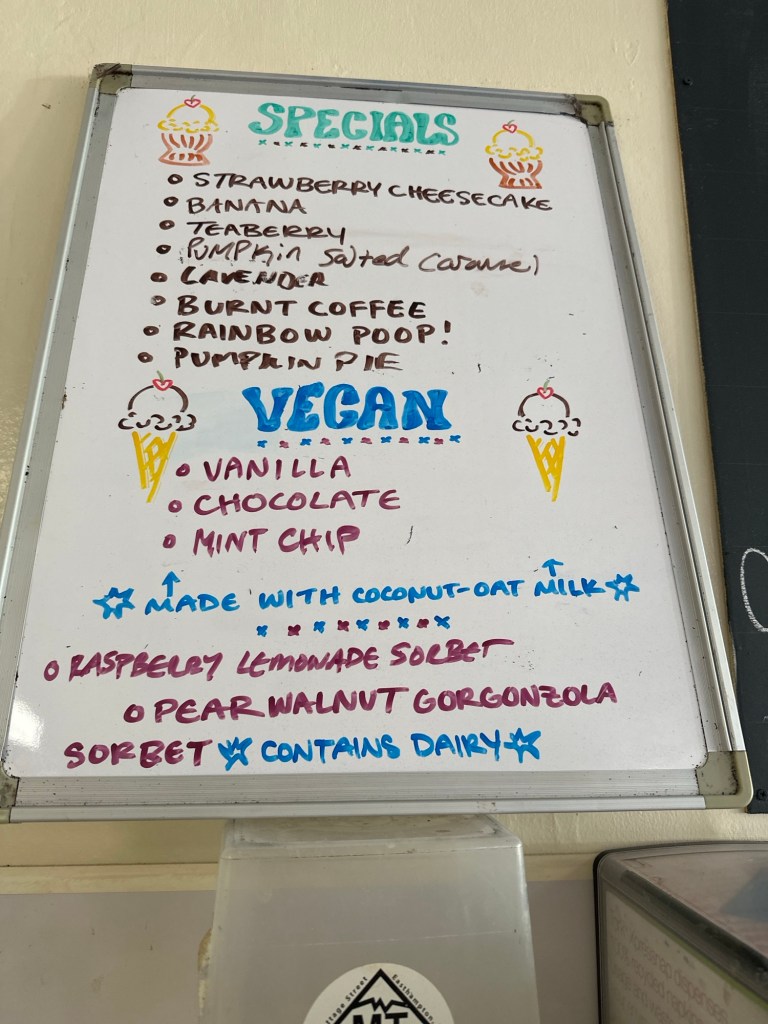 SPECIALS
STRAWBERRY CHEESECAKE
BANANA
TEABERRY
PUMPKin Salted Caramel
LAVENDER
BURNT COFFEE
RAINBOW POOP!
PUMPKIN PIE
VEGAN
VANILLA
CHOCOLATE
MINT CHIP
MADE WITH COCONUT-OAT MILK
RASPBERRY LEMONADE SORBET
PEAR WALNUT GORGONZOLA
SORBET CONTAINS DAIRY
ttage Street Easthampton
MT